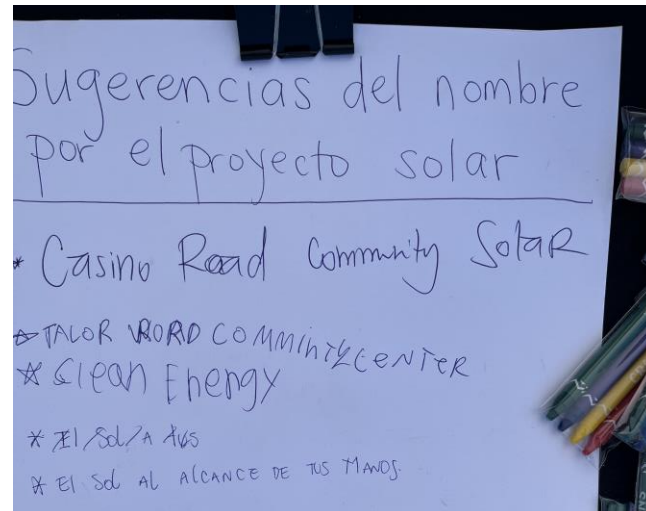 Sugerencias del nombre
por el proyecto solar
* Casino Road Community SolaR
* TALOR ROAD COMMiniTY CENTER
* Clean Energy
* El Sol
* El Sol AL AlCANCE DE TUS MANOS.